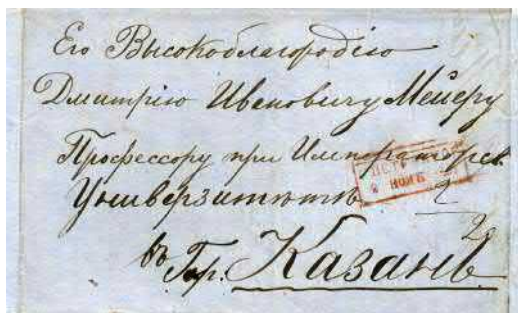 Его Высокоблагородію
Дмитрію Ивановичу Мейеру
Профессору при Императорск.
Университетѣ
въ Гор. Казань